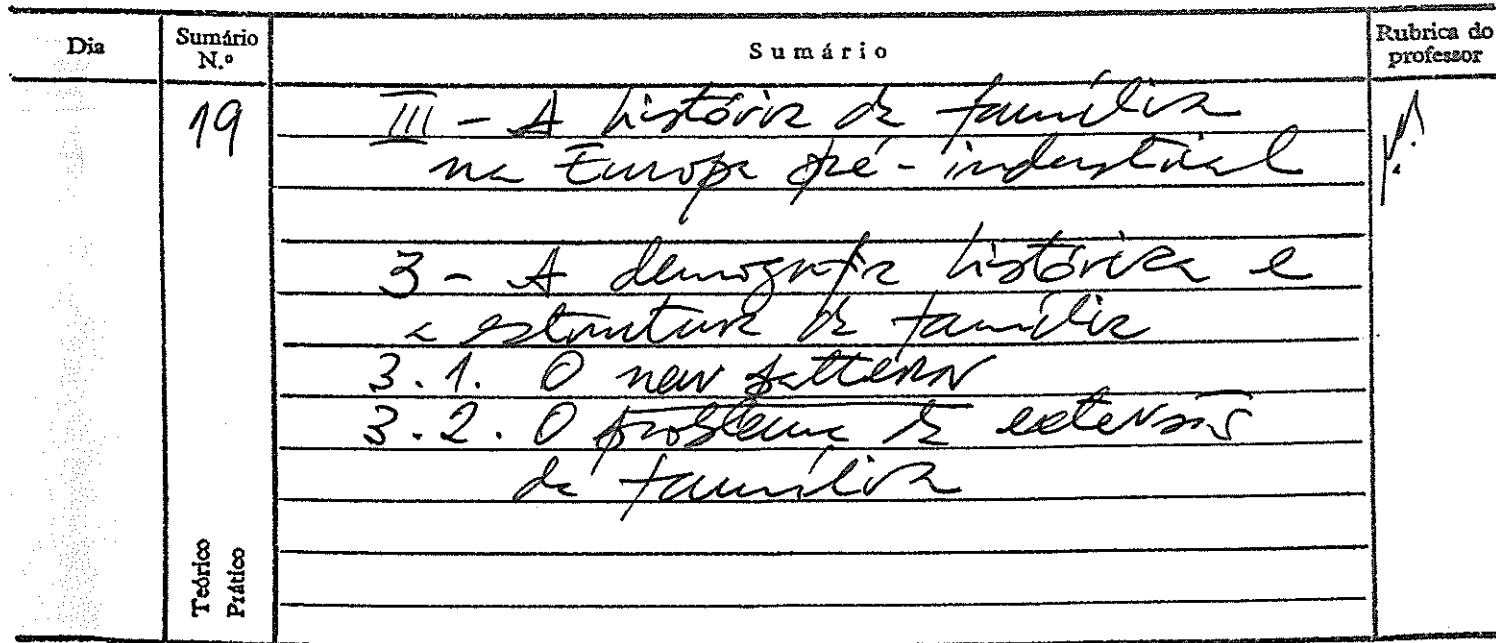 Dia
Sumário N.º
Sumário
Rubrica do professor
19
III - A história da família
na Europa pré-industrial
3 - A demografia histórica e
a estrutura da família
3.1. O new pattern
3.2. O problema da extensão
da família
Teórico
Prático